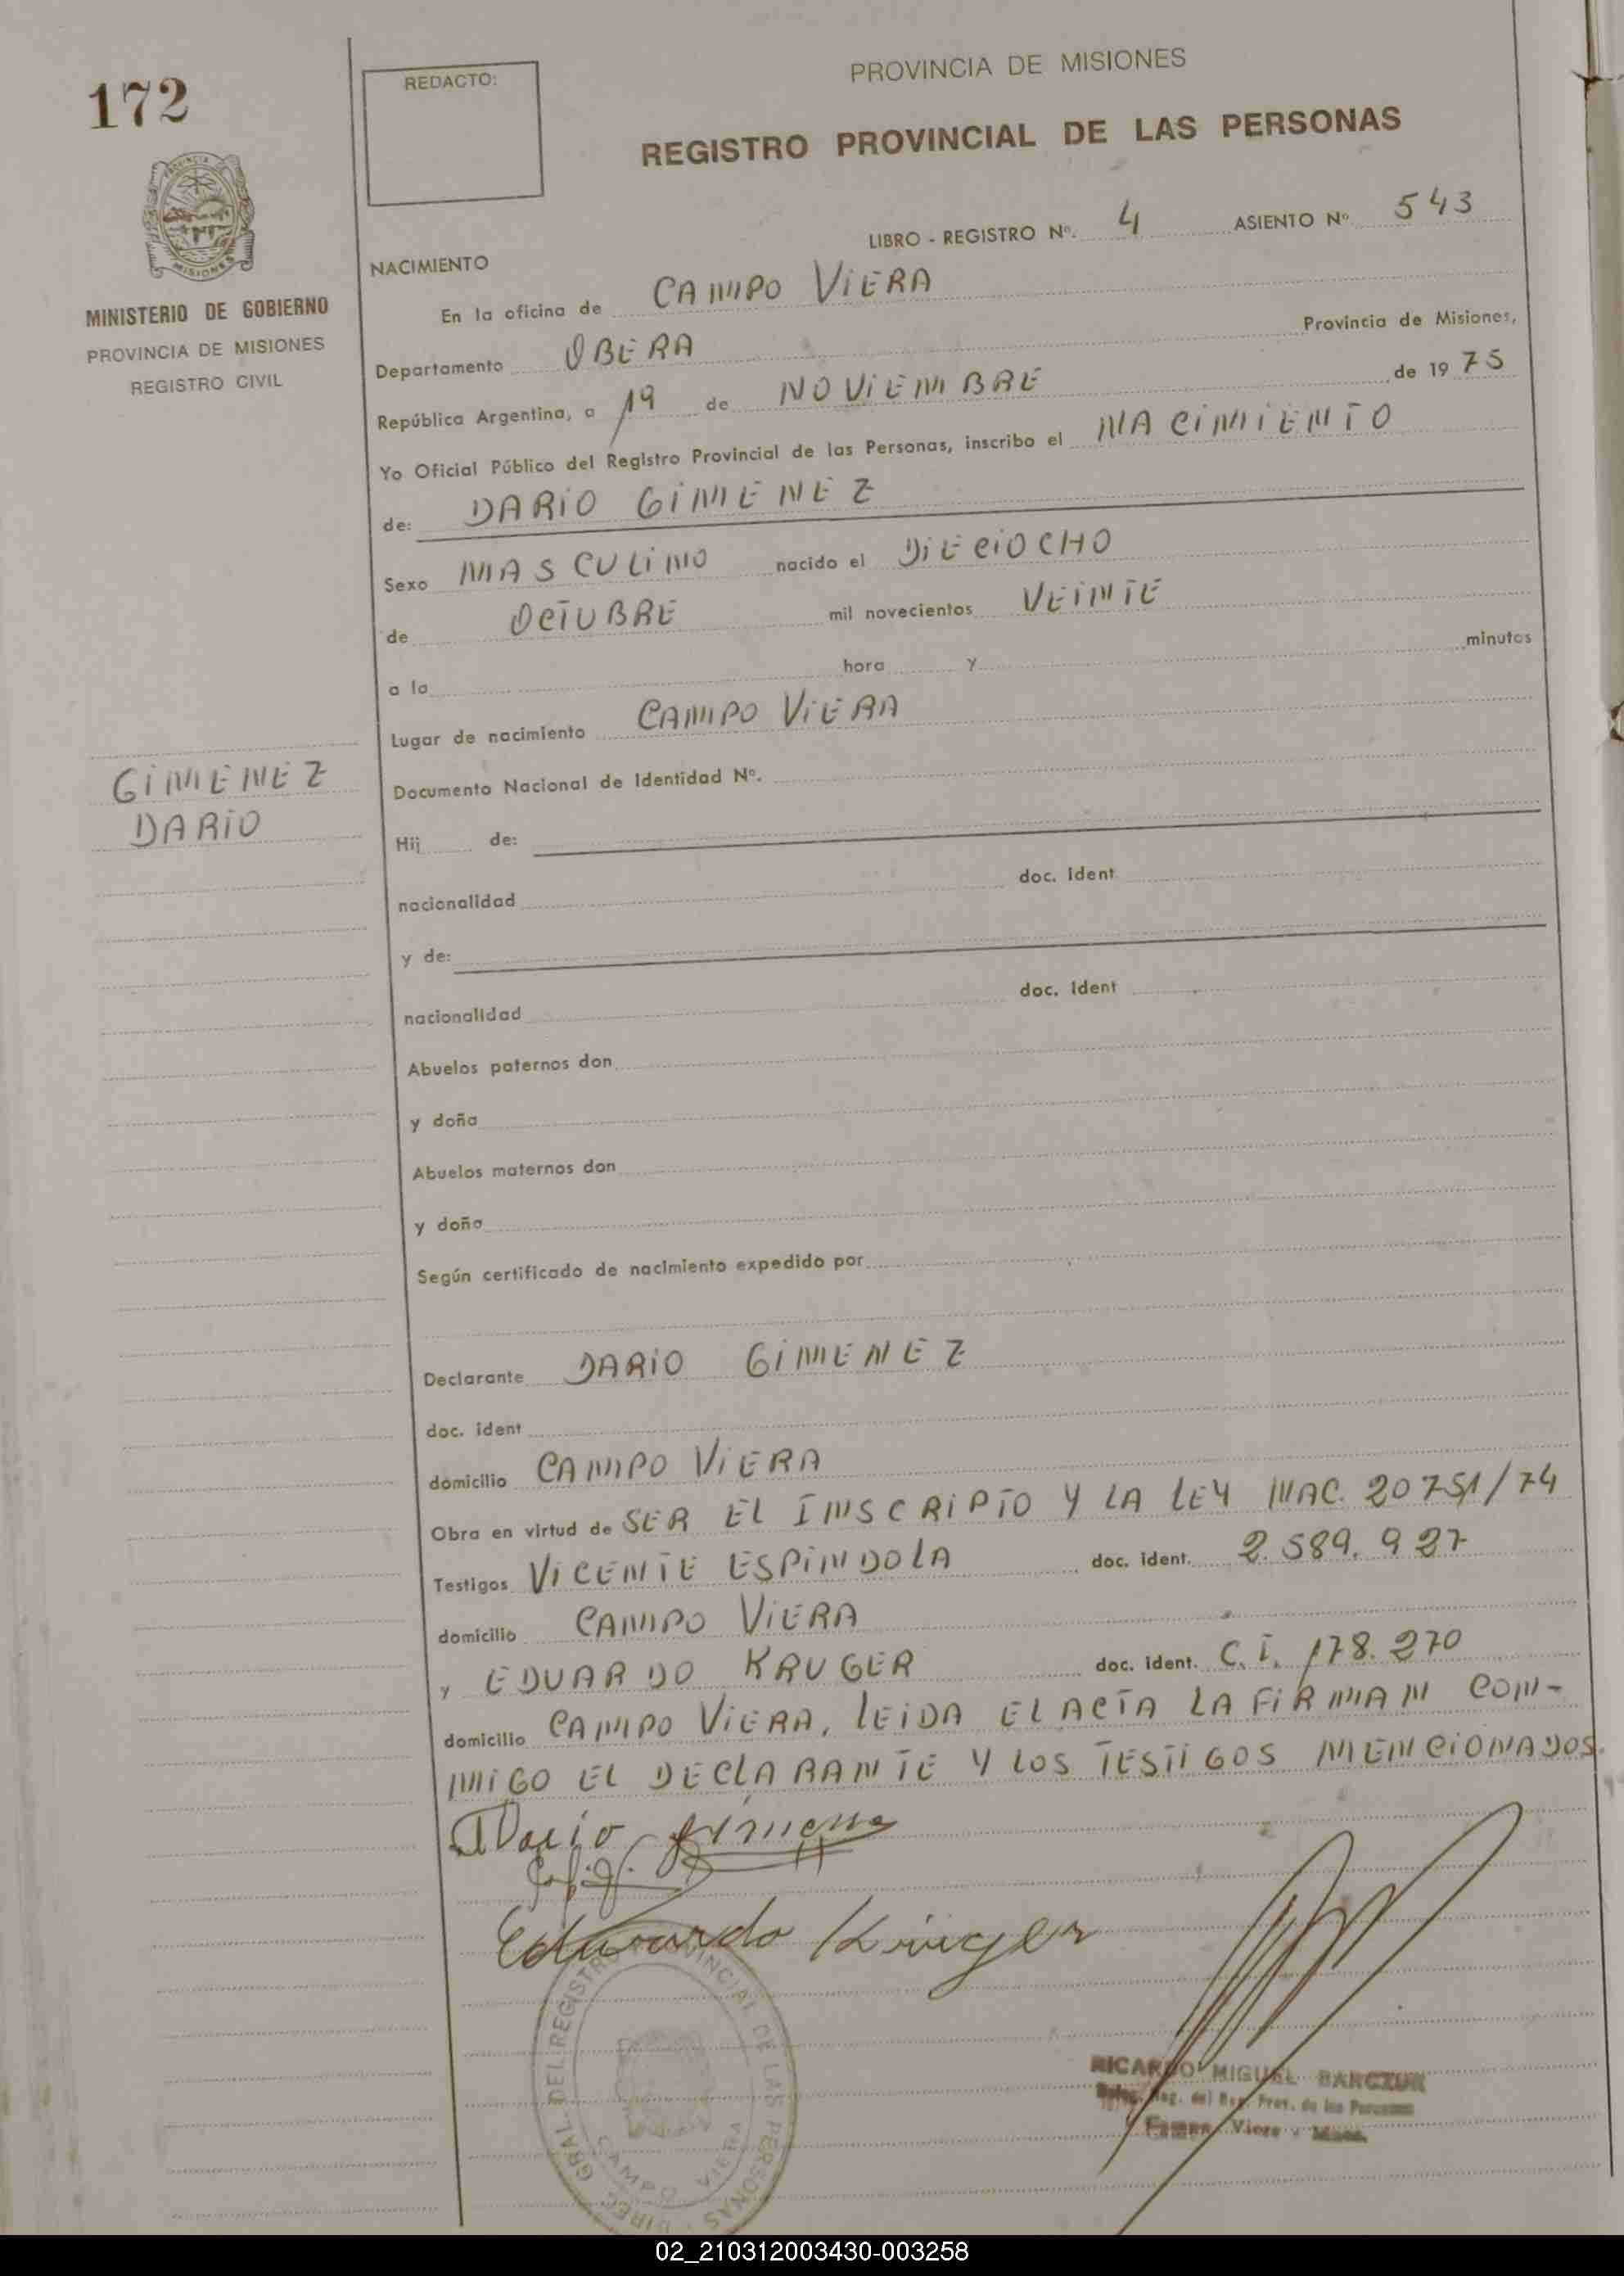 172
REDACTO:
PROVINCIA DE MISIONES
REGISTRO PROVINCIAL DE LAS PERSONAS
PROVINCIA DE
MISIONES
MINISTERIO DE GOBIERNO
PROVINCIA DE MISIONES
REGISTRO CIVIL
LIBRO - REGISTRO Nº. 4 ASIENTO Nº 543
NACIMIENTO
En la oficina de CAMPO VIERA
Departamento OBERA Provincia de Misiones,
República Argentina, a 19 de NOVIEMBRE de 1975
Yo Oficial Público del Registro Provincial de las Personas, inscribo el NACIMIENTO
de: DARIO GIMENEZ
Sexo MASCULINO nacido el DIECIOCHO
de OCTUBRE mil novecientos VEINTE
a la hora y minutos
Lugar de nacimiento CAMPO VIERA
GIMENEZ
DARIO
Documento Nacional de Identidad Nº.
Hij de:
nacionalidad doc. ident
y de:
nacionalidad doc. ident
Abuelos paternos don
y doña
Abuelos maternos don
y doña
Según certificado de nacimiento expedido por
Declarante DARIO GIMENEZ
doc. ident
domicilio CAMPO VIERA
Obra en virtud de SER EL INSCRIPTO Y LA LEY NAC. 20751/74
Testigos VICENTE ESPINDOLA doc. ident. 2.589.927
domicilio CAMPO VIERA
y EDUARDO KRUGER doc. ident. C.I. 178.270
domicilio CAMPO VIERA, LEIDA EL ACTA LA FIRMAN CON-
MIGO EL DECLARANTE Y LOS TESTIGOS MENCIONADOS.
Dario Gimenez
Eduardo Krüger
DIREC. GRAL DEL REGISTRO PROVINCIAL DE LAS PERSONAS
CAMPO VIERA
RICARDO MIGUEL BARCZUK
Deleg. Reg. del Reg. Prov. de las Personas
Campo Viera - Mnes.
02_210312003430-003258